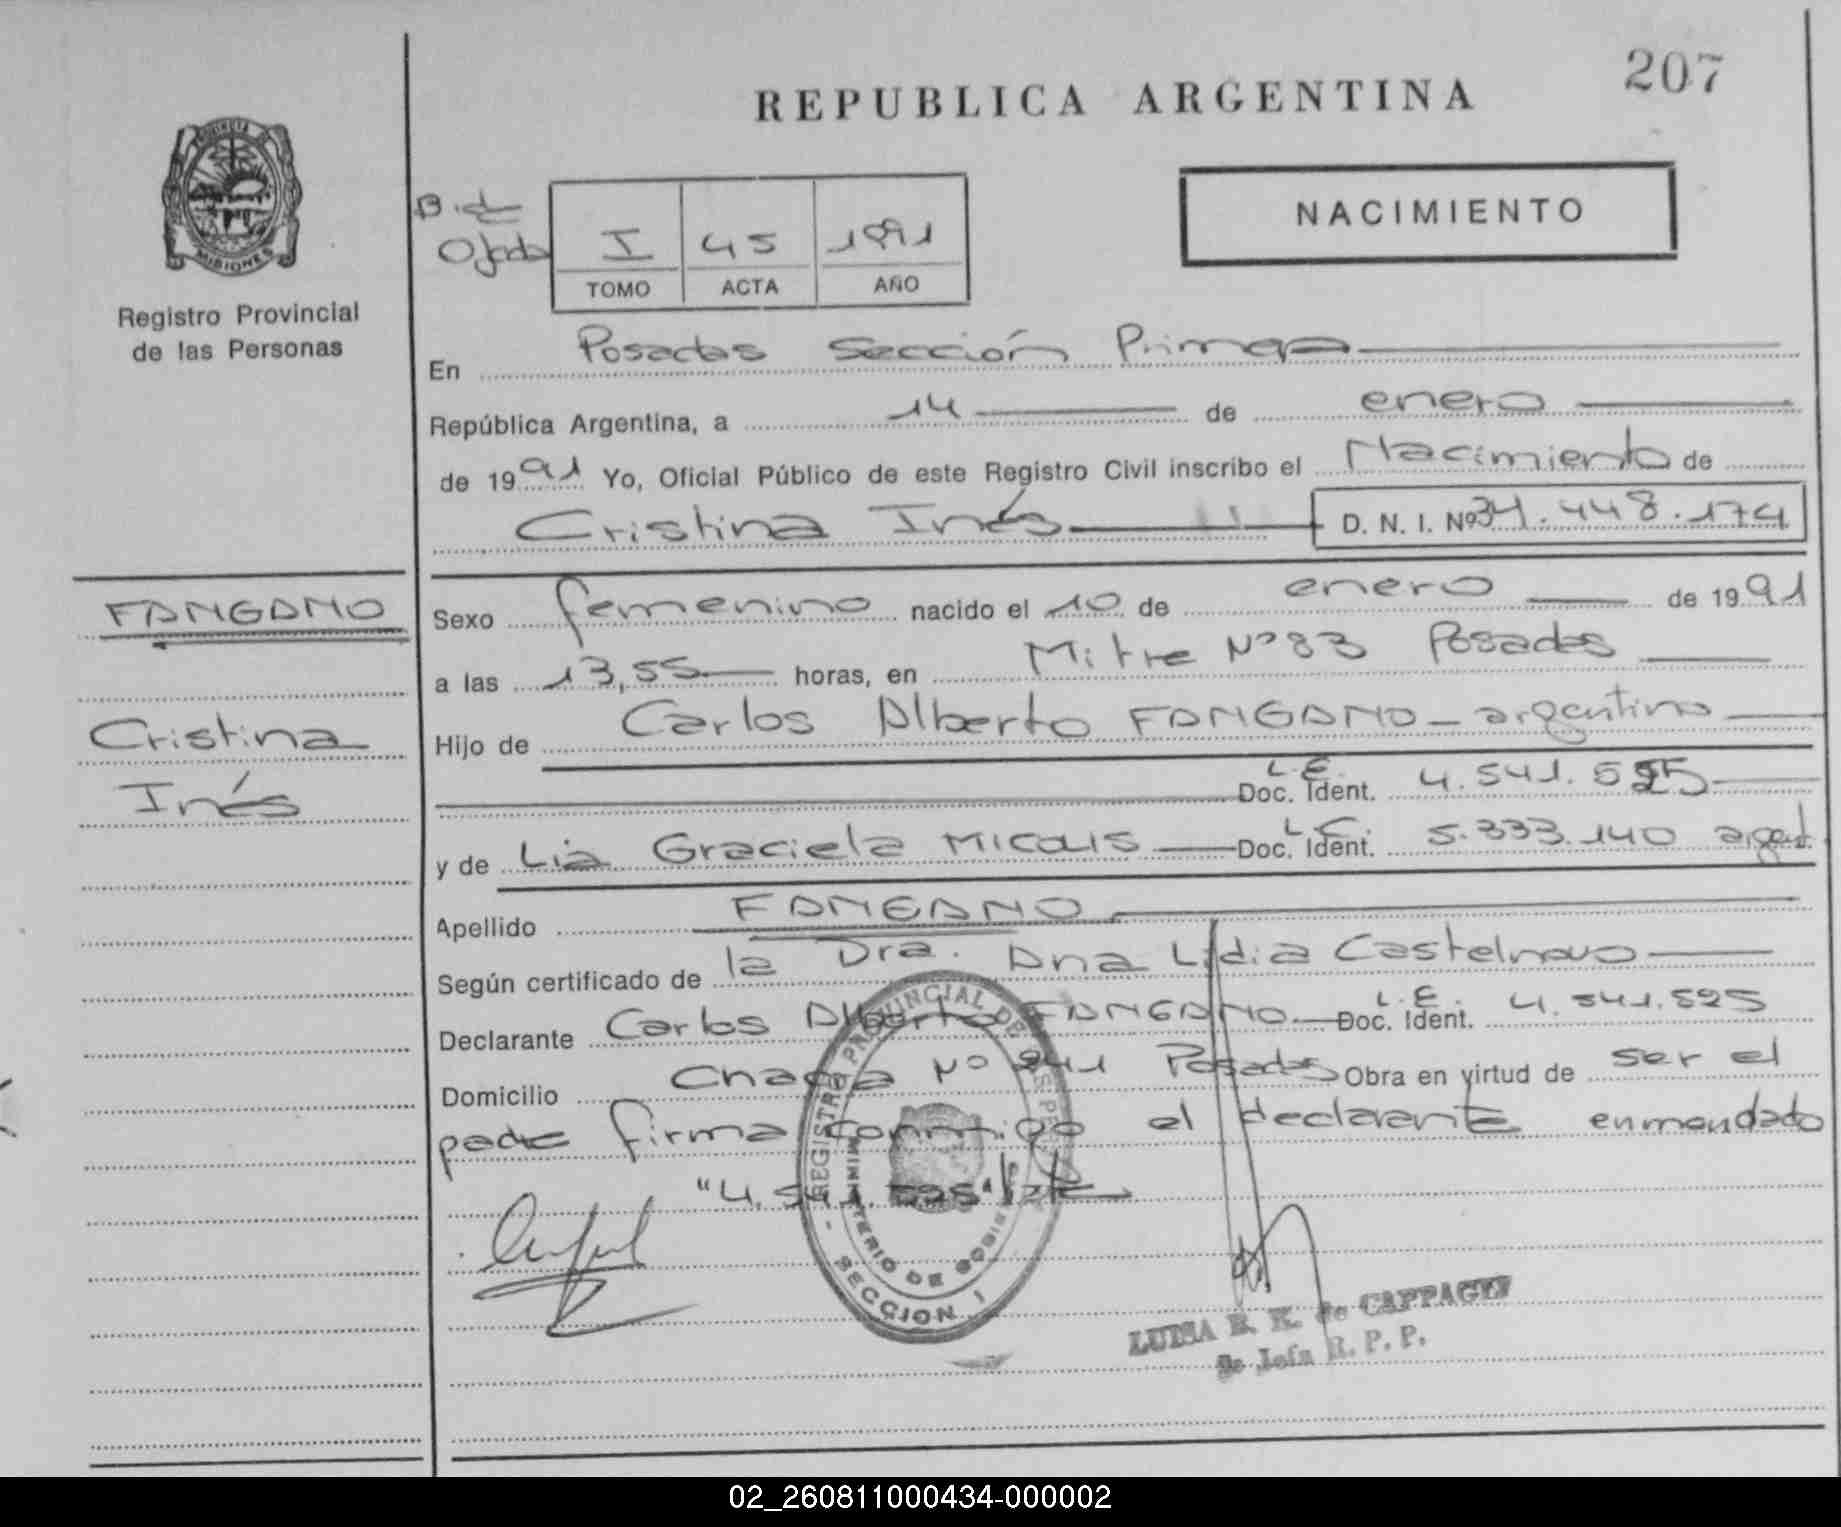 207
REPUBLICA ARGENTINA
NACIMIENTO
I 45 1991
TOMO ACTA AÑO
PROVINCIA DE
MISIONES
Registro Provincial
de las Personas
En Posadas Sección Primera
República Argentina, a 14 de enero
de 1991 Yo, Oficial Público de este Registro Civil inscribo el Nacimiento de
Cristina Inés D. N. I. Nº 34.448.174
FANGANO
Cristina
Inés
Sexo femenino nacido el 10 de enero de 1991
a las 13,55 horas, en Mitre Nº 83 Posadas
Hijo de Carlos Alberto FANGANO - argentino
L.E.
Doc. Ident. 4.541.525
y de Lia Graciela MICOLIS L.C. Doc. Ident. 5.333.140 argent.
Apellido FANGANO
Según certificado de la Dra. Ana Lidia Castelnovo
Declarante Carlos Alberto FANGANO L.E. Doc. Ident. 4.541.525
Domicilio Nº 841 Posadas Obra en virtud de ser el
padre firma conmigo el declarante enmendado
"4.541.525" Vale
REGISTRO PROVINCIAL DE LAS PERSONAS
MINISTERIO DE GOBIERNO
- SECCION I
LUISA E. K. de
R. P. P.
02_260811000434-000002